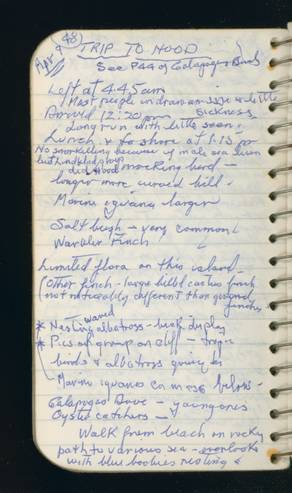 48
Apr 9
TRIP TO HOOD
See P44 of Galapagos Birds
Left at 4.45 am
Most people in dramamine + little sickness
Arrived 12:20 pm
Long run with little seen.
Lunch + to shore at 1:15 pm
No snorkelling because of male sea lion
but Lindblad group did
Hood mocking bird —
longer more curved bill.
Marine iguana larger
Salt bush — very common
Warbler Finch
Limited flora on this island —
(Other finch - large billed cactus finch
(not noticeably different than ground finches
* Nesting waved albatross - beak display
* Pics of group on cliff — tropic
birds + albatross going by
Marine iguana en masse below -
Galapagos Dove - young ones
Oyster catchers —
Walk from beach on rocky
path to various sea - overlooks
with blue boobies nesting &